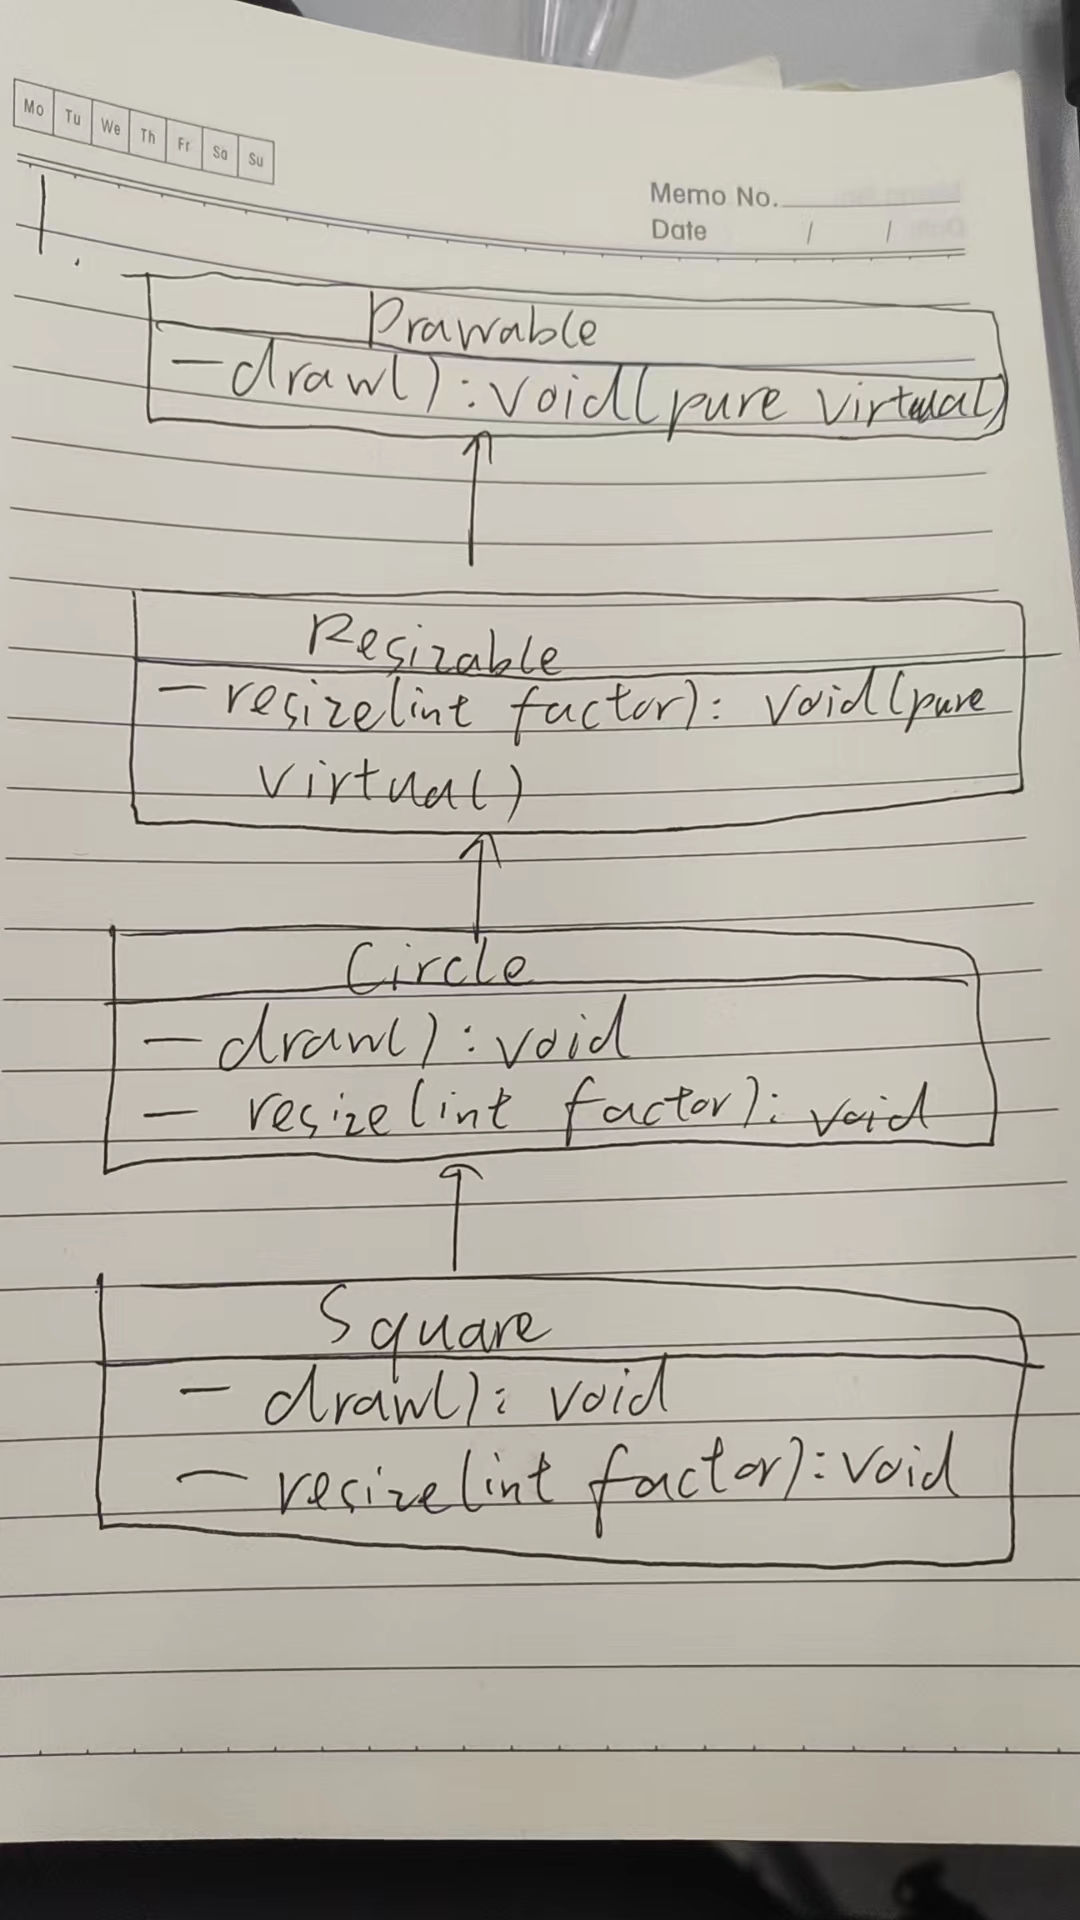 Mo Tu We Th Fr Sa Su
Memo No.
Date / /
1.
Drawable
- draw() : void(pure virtual)
Resizable
- resize(int factor): void(pure
virtual()
Circle
- draw() : void
- resize(int factor): void
Square
- draw(): void
- resize(int factor): void